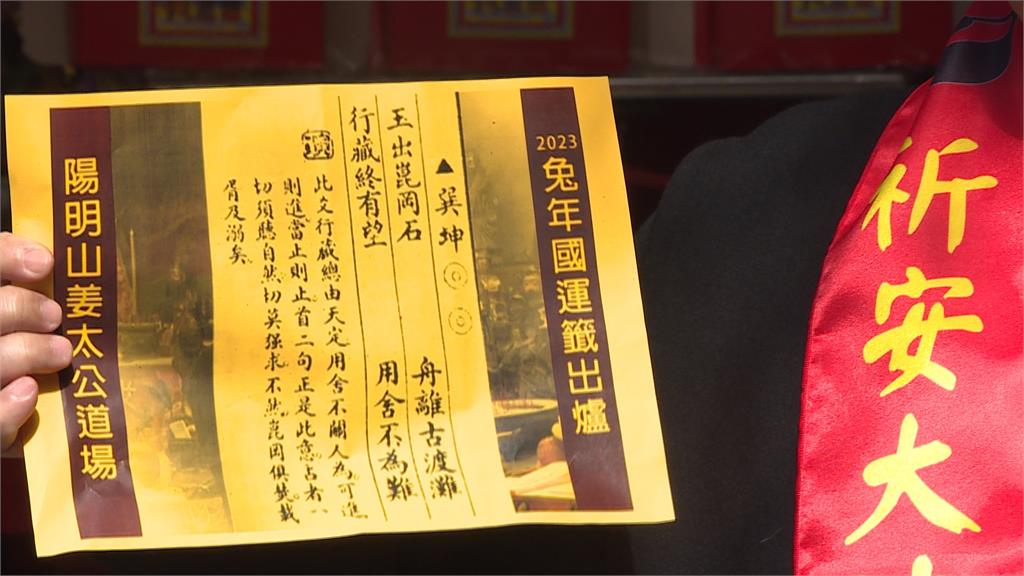 祈安大
2023
兔年國運籤出爐
▲巽坤
玉出崑岡石 舟離古渡灘
行藏終有望 用舍不為難
此文行藏總由天定用舍不關人為可進
則進當止則止首二句正是此意占者
切須聽自然切莫强求不然崑岡俱焚載
胥及溺矣
陽明山姜太公道場